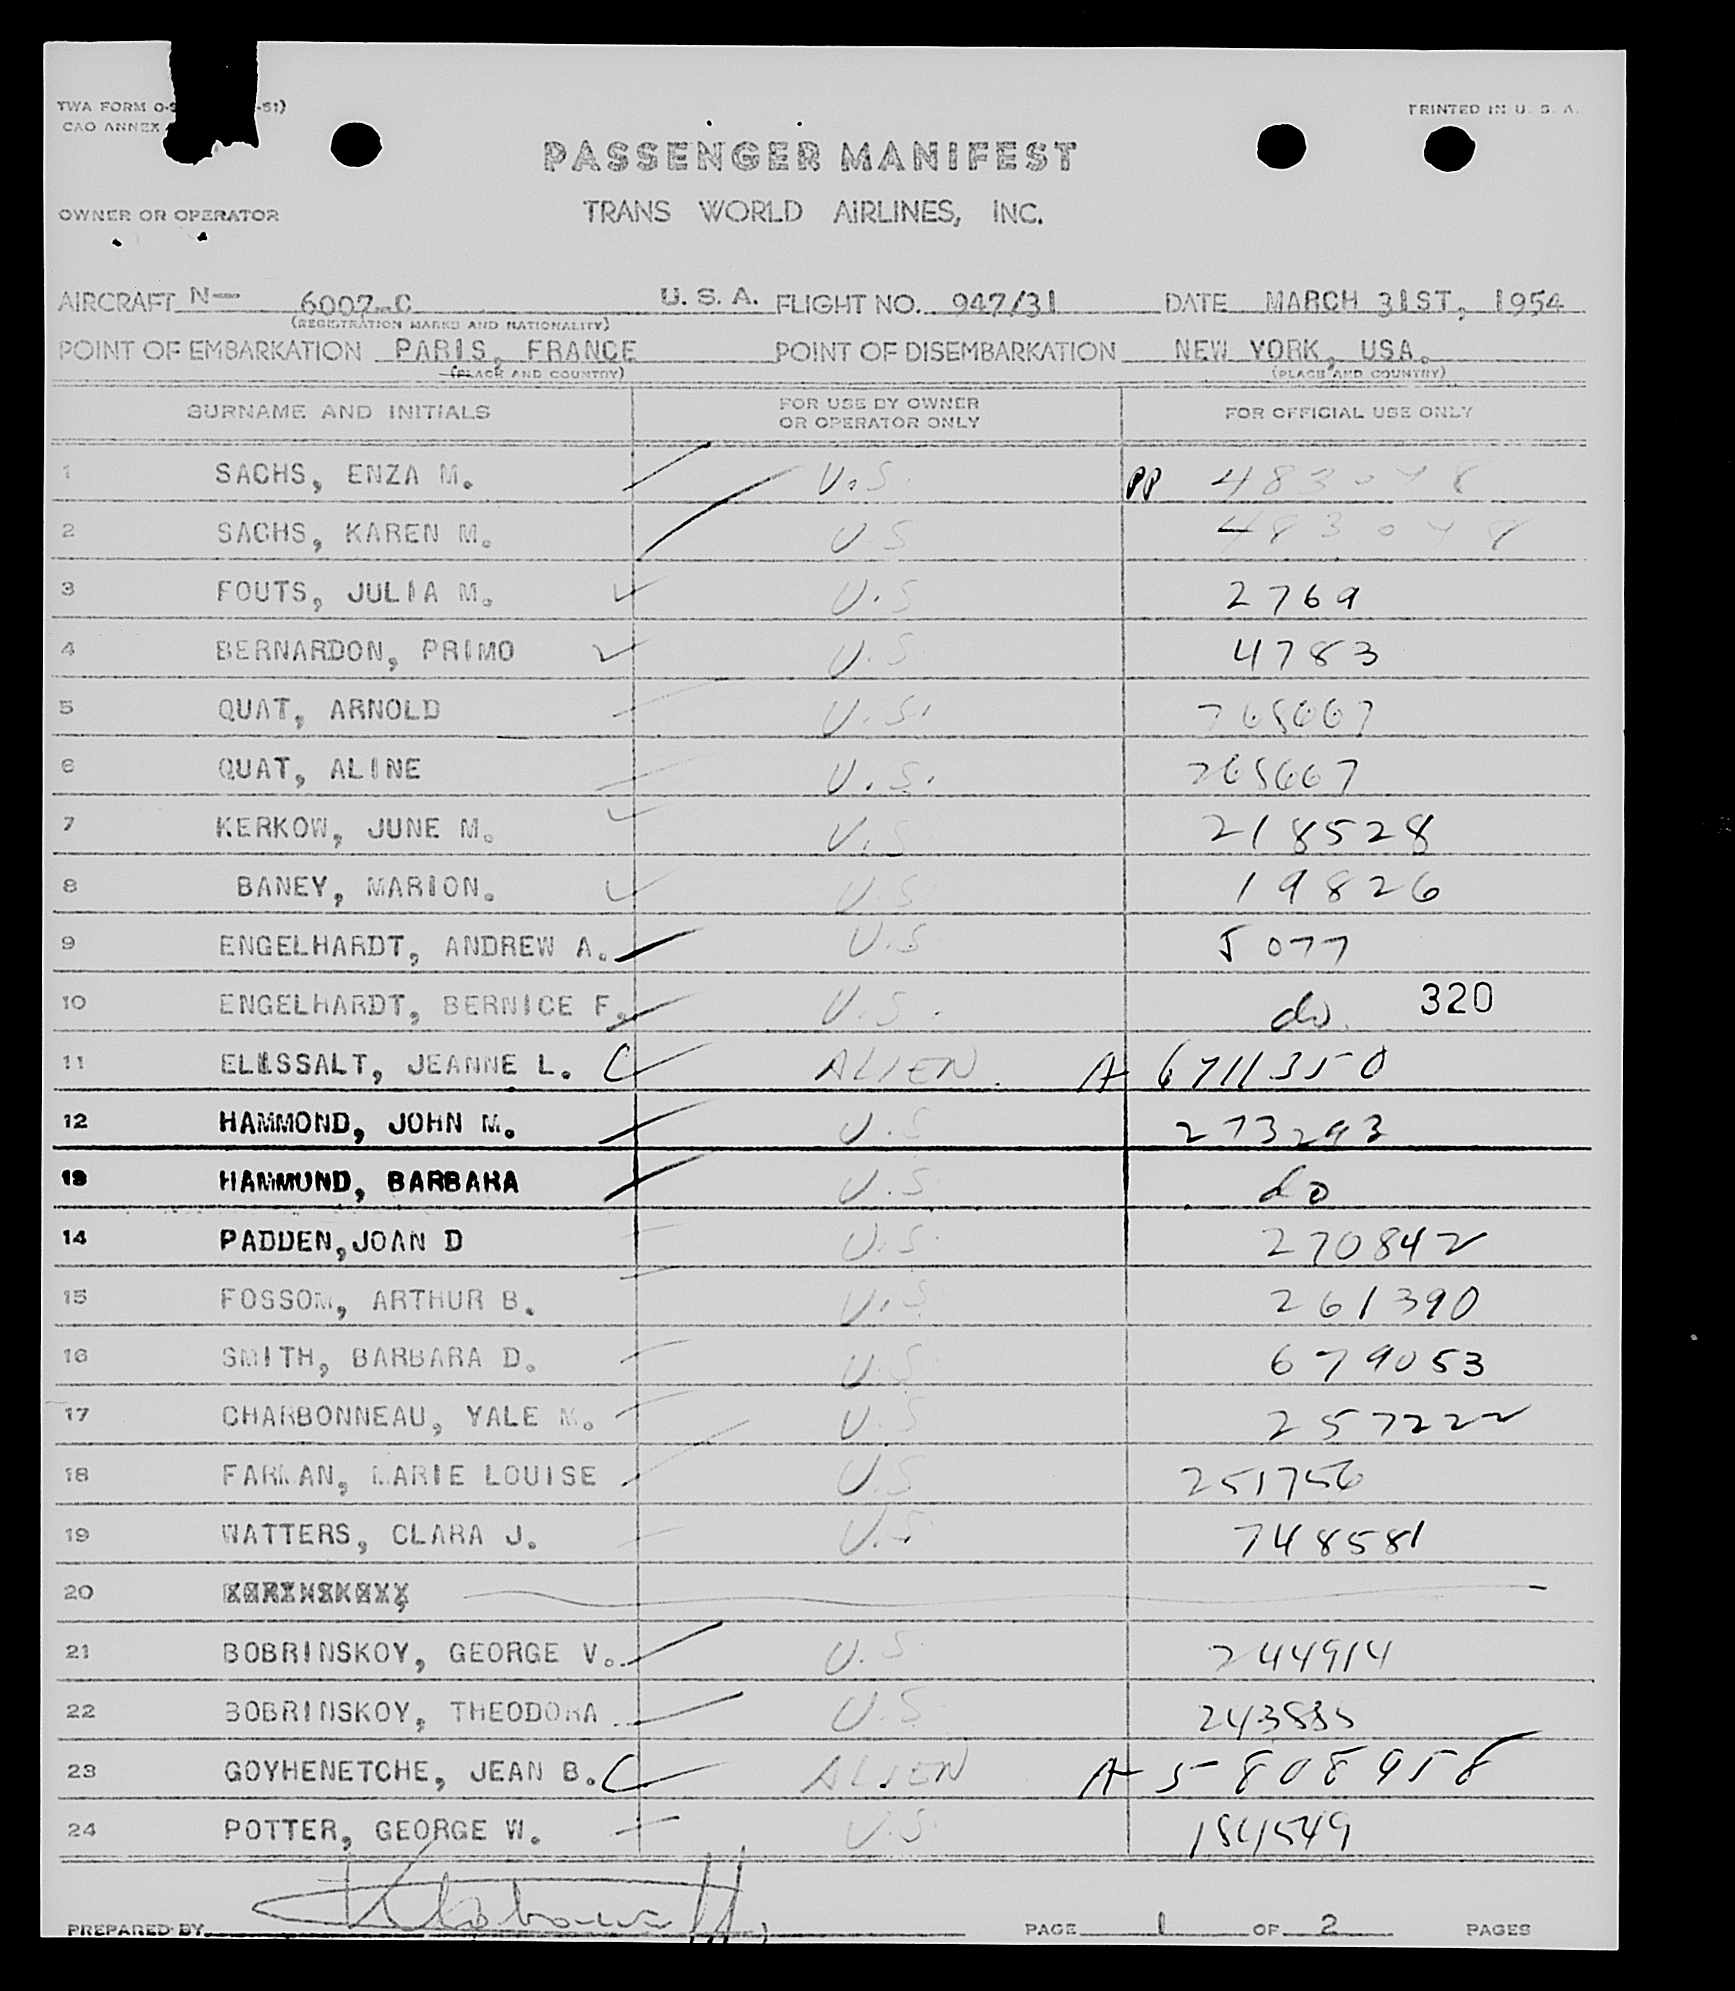 TWA FORM O-9 -51)
PRINTED IN U. S. A.
CAO ANNEX
PASSENGER MANIFEST
OWNER OR OPERATOR
TRANS WORLD AIRLINES, INC.
AIRCRAFT N— 6007-C U. S. A. FLIGHT NO. 947/31 DATE MARCH 31ST, 1954
(REGISTRATION MARKS AND NATIONALITY)
POINT OF EMBARKATION PARIS, FRANCE POINT OF DISEMBARKATION NEW YORK, USA.
(PLACE AND COUNTRY) (PLACE AND COUNTRY)
SURNAME AND INITIALS FOR USE BY OWNER OR OPERATOR ONLY FOR OFFICIAL USE ONLY
1 SACHS, ENZA M. U.S. PP 483048
2 SACHS, KAREN M. U.S 483048
3 FOUTS, JULIA M. U.S 2769
4 BERNARDON, PRIMO U.S 4783
5 QUAT, ARNOLD U.S. 765667
6 QUAT, ALINE U.S. 765667
7 KERKOW, JUNE M. U.S 218528
8 BANEY, MARION. U.S 19826
9 ENGELHARDT, ANDREW A. U.S 5077
10 ENGELHARDT, BERNICE F. U.S. do. 320
11 ELISSALT, JEANNE L. C ALIEN A 6711350
12 HAMMOND, JOHN M. U.S 273293
13 HAMMOND, BARBARA U.S do
14 PADDEN,JOAN D U.S. 270842
15 FOSSOM, ARTHUR B. U.S 261390
16 SMITH, BARBARA D. U.S 679053
17 CHARBONNEAU, YALE M. U.S 257222
18 FARMAN, MARIE LOUISE U.S 251756
19 WATTERS, CLARA J. U.S 748581
20
21 BOBRINSKOY, GEORGE V. U.S 244914
22 BOBRINSKOY, THEODORA U.S 243885
23 GOYHENETCHE, JEAN B. C ALIEN A 5808958
24 POTTER, GEORGE W. U.S. 154549
PREPARED BY PAGE 1 OF 2 PAGES